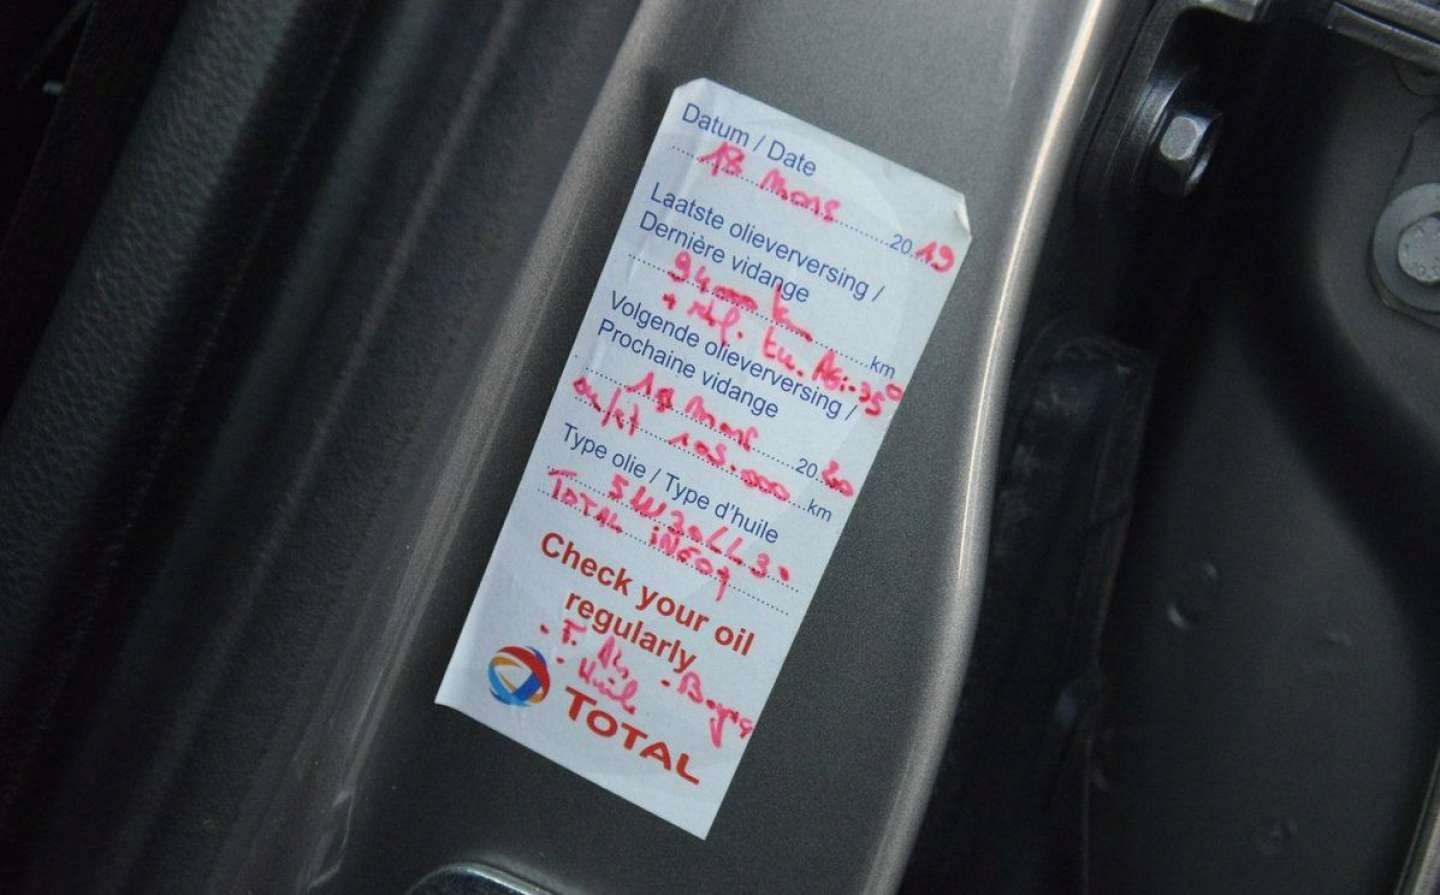 Datum / Date
18 mars 2019
Laatste olieverversing /
Dernière vidange
94000 k km
+
Volgende olieverversing /
Prochaine vidange
18 mars 2020
105.000 km
Type olie / Type d'huile
5W30LL30
TOTAL iNEO
Check your oil
regularly
- F. - Bougies
- Huile
TOTAL